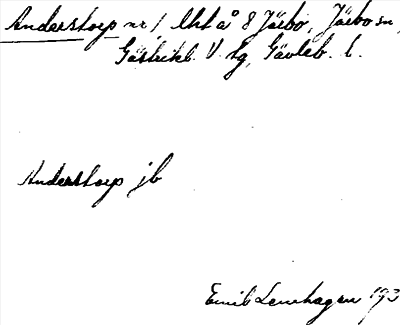 Anderstorp nr 1 lht å 8 Järbo, Järbo sn,
Gästrikl. V. tg, Gävleb. l.
Anderstorp jb
Emil Lennhagen 193